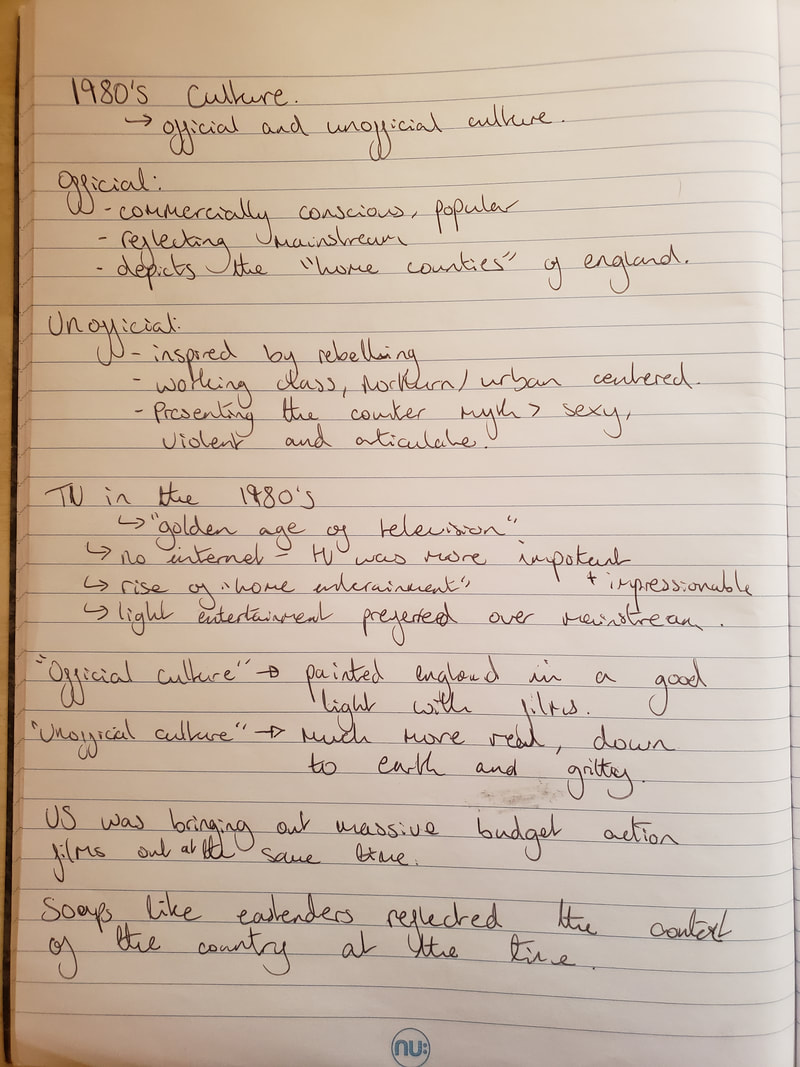 1980's Culture.
↳ official and unofficial culture.
Official:
- commercially conscious, popular
- reflecting mainstream
- depicts the "home counties" of england.
Unofficial:
- inspired by rebelling
- working class, Northern/urban centered.
- Presenting the counter myth > sexy,
violent and articulate.
TV in the 1980's
↳ "golden age of television"
↳ no internet - TV was more impotant
↳ rise of "home entertainment" + impressionable
↳ light entertainment preferred over mainstream.
"Official culture" → painted england in a good
light with films.
"Unofficial culture" → Much more real, down
to earth and gritty.
US was bringing out massive budget action
films out at the same time.
Soaps like eastenders reflected the context
of the country at the time.
nu: